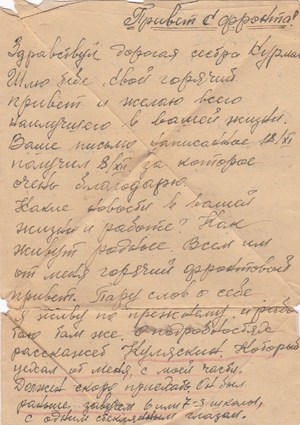 Привет с фронта!
Здравствуй дорогая сестра Нурма
Шлю тебе свой горячий
привет и желаю всего
наилучшего в вашей жизни.
Ваше письмо написанное 12/XI
получил 8/XII за которое
очень благодарю.
Какие новости в вашей
жизни и работе? Как
живут родные. Всем им
от меня горячий фронтовой
привет. Пару слов о себе
я живу по прежнему и рабо
таю там же о подробностях
расскажет Кулякин, который
уехал от меня, с моей части.
Должен скоро приехать. Он был
раньше завучем 6 или 7-й школы,
с одним стеклянным глазом.